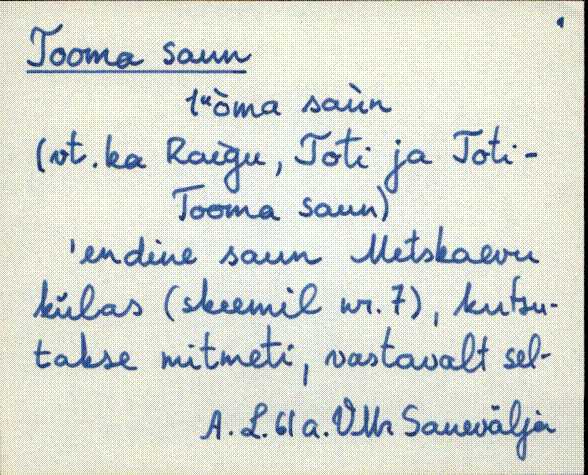 Tooma saun
tᵘòma saùn
(vt. ka Raigu, Toti ja Toti-
Tooma saun)
'endine saun Metskaevu
külas (skeemil nr. 7), kutsu-
takse mitmeti, vastavalt sel-
A. L. 61 a. VMr Saueväljа